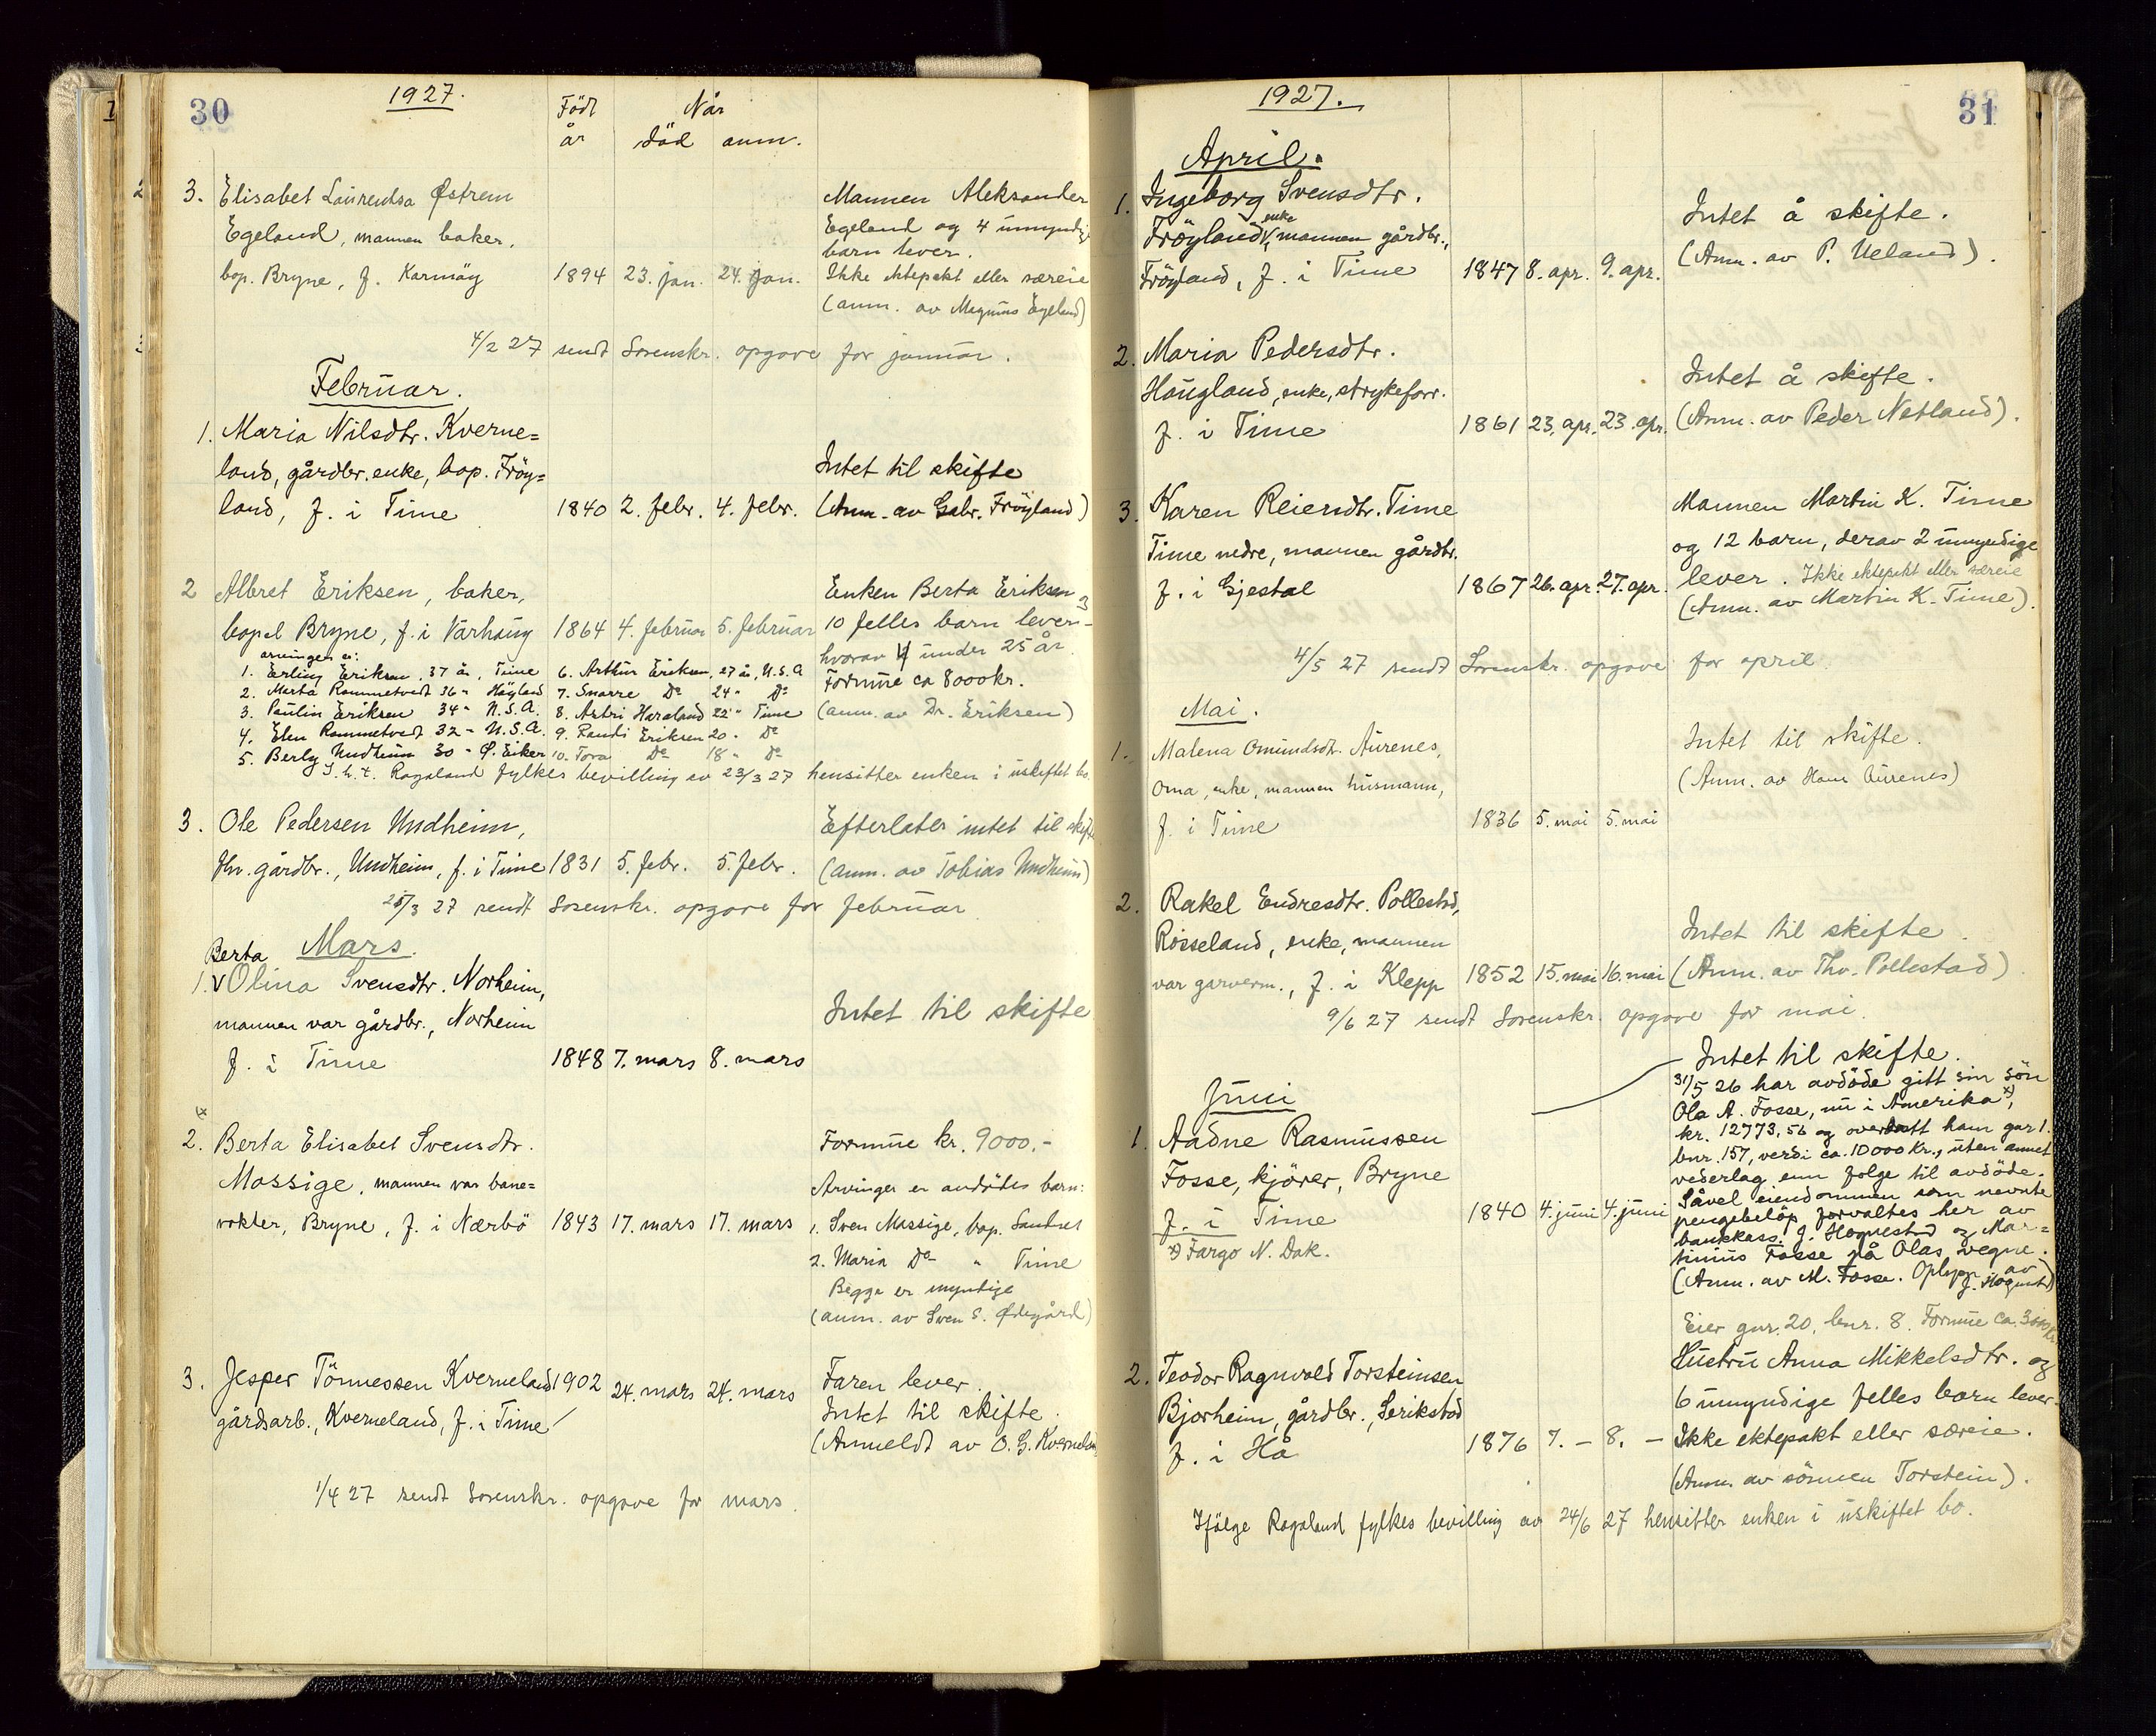 30
1927.
Født Når
år död anm.
3. Elisabet Laurentsa Østrem
Egeland, mannen baker.
bop. Bryne, f. Karmöy 1894 23. jan. 24. jan.
Mannen Aleksander
Egeland og 4 umyndig
barn lever.
Ikke ektepakt eller særeie
(anm. av Magnus Egeland)
4/2 27 sendt Sorenskr. opgave for januar.
Februar.
1. Maria Nilsdtr. Kverne=
land, gårdbr. enke, bop. Fröy=
land, f. i Time 1840 2. febr. 4. febr.
Intet til skifte
(Anm. av Gabr. Fröyland)
2 Albret Eriksen, baker,
bopel Bryne, f. i Varhaug 1864 4. februar 5. februar
Enken Berta Eriksen og
10 felles barn lever -
hvorav 4 under 25 år.
Formue ca 8000 kr.
(anm. av Dr. Eriksen)
arvinger er:
1. Erling Eriksen, 37 år, Time 6. Arthur Eriksen, 27 år, U.S.A
2. Marta Rommetvedt 36 " Höyland 7. Snorre Do 24 " Do
3. Paulin Eriksen 34 " U.S.A. 8. Astri Haraland 22 " Time
4. Elen Rommetvedt 32 " U.S.A. 9. Randi Eriksen 20 " Do
5. Berly Undheim 30 " Ø. Eiker 10. Tora Do 18 " Do
I.h.t. Rogaland fylkes bevilling av 23/3 27 hensitter enken i uskiftet bo.
3. Ole Pedersen Undheim,
fhv. gårdbr., Undheim, f. i Time 1831 5. febr. 5. febr.
Efterlater intet til skifte
(anm. av Tobias Undheim)
25/3 27 sendt Sorenskr. opgave for februar
Mars.
Berta
1. V Olina Svensdtr. Norheim,
mannen var gårdbr., Norheim
f. i Time 1848 7. mars 8. mars
Intet til skifte
2. Berta Elisabet Svensdtr.
Mossige, mannen var bane=
vokter, Bryne, f. i Nærbö 1843 17. mars 17. mars
Formue kr. 9000.-
Arvinger er avdödes barn:
1. Sven Mossige, bop. Sandnes
2. Maria Do " Time
Begge er myndige
(anm. av Sven S. Ødegård)
3. Jesper Tönnessen Kverneland 1902 24. mars 24. mars
gårdsarb., Kverneland, f. i Time
Faren lever.
Intet til skifte.
(Anmeldt av O. G. Kverneland
1/4 27 sendt Sorenskr. opgave for mars.
31
1927.
April.
1. Ingeborg Svensdtr.
enke
Fröyland V, mannen gårdbr.,
Fröyland, f. i Time 1847 8. apr. 9. apr.
Intet å skifte.
(Anm. av P. Ueland).
2. Maria Pedersdtr.
Haugland, enke, strykeforr.
f. i Time 1861 23. apr. 23. apr.
Intet å skifte.
(Anm. av Peder Netland).
3. Karen Reiersdtr. Time
Time nedre, mannen gårdbr.
f. i Gjestal 1867 26. apr. 27. apr.
Mannen Martin K. Time
og 12 barn, derav 2 umyndige
lever. Ikke ektepakt eller særeie
(Anm. av Martin K. Time).
4/5 27 sendt Sorenskr. opgave for april.
Mai.
1. Malena Omundsdtr. Aurenes,
Oma, enke, mannen husmann,
f. i Time 1836 5. mai 5. mai
Intet til skifte.
(Anm. av Hans Aurenes)
2. Rakel Endresdtr. Pollestad,
Rosseland, enke, mannen
var garverm., f. i Klepp 1852 15. mai 16. mai
Intet til skifte.
(Anm. av Thv. Pollestad)
9/6 27 sendt Sorenskr. opgave for mai.
Juni
1. Aadne Rasmussen
Fosse, kjörer, Bryne
f. i Time 1840 4. juni 4. juni
x) Fargo N. Dak.
Intet til skifte.
31/5 26 har avdöde gitt sin sön
Ola A. Fosse, nu i Amerika x),
kr. 12773,56 og overdratt ham gnr 1.
bnr. 157, verdi ca. 10000 kr., uten annet
vederlag enn folge til avdöde.
Såvel eiendommen som nevnte
pengebelöp forvaltes her av
bankkass. J. Hognestad og Mar=
tinius Fosse på Olas vegne.
(Anm. av M. Fosse. Oplysn. av
J. Hognestad)
2. Teodor Ragnvald Torsteinsen
Bjorheim, gårdbr., Serikstad
f. i Hå 1876 7. - 8. -
Eier gnr. 20, bnr. 8. Formue ca. 3000 kr
Hustru Anna Mikkelsdtr. og
6 umyndige felles barn lever.
Ikke ektepakt eller særeie.
(Anm. av sönnen Torstein).
Ifölge Rogaland fylkes bevilling av 24/6 27 hensitter enken i uskiftet bo.